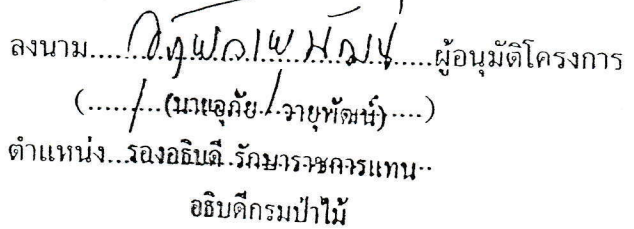 ลงนาม....................ผู้อนุมัติโครงการ
(........(นายอุภัย วายุพัฒน์).....)
ตำแหน่ง...รองอธิบดี รักษาราชการแทน..
อธิบดีกรมป่าไม้